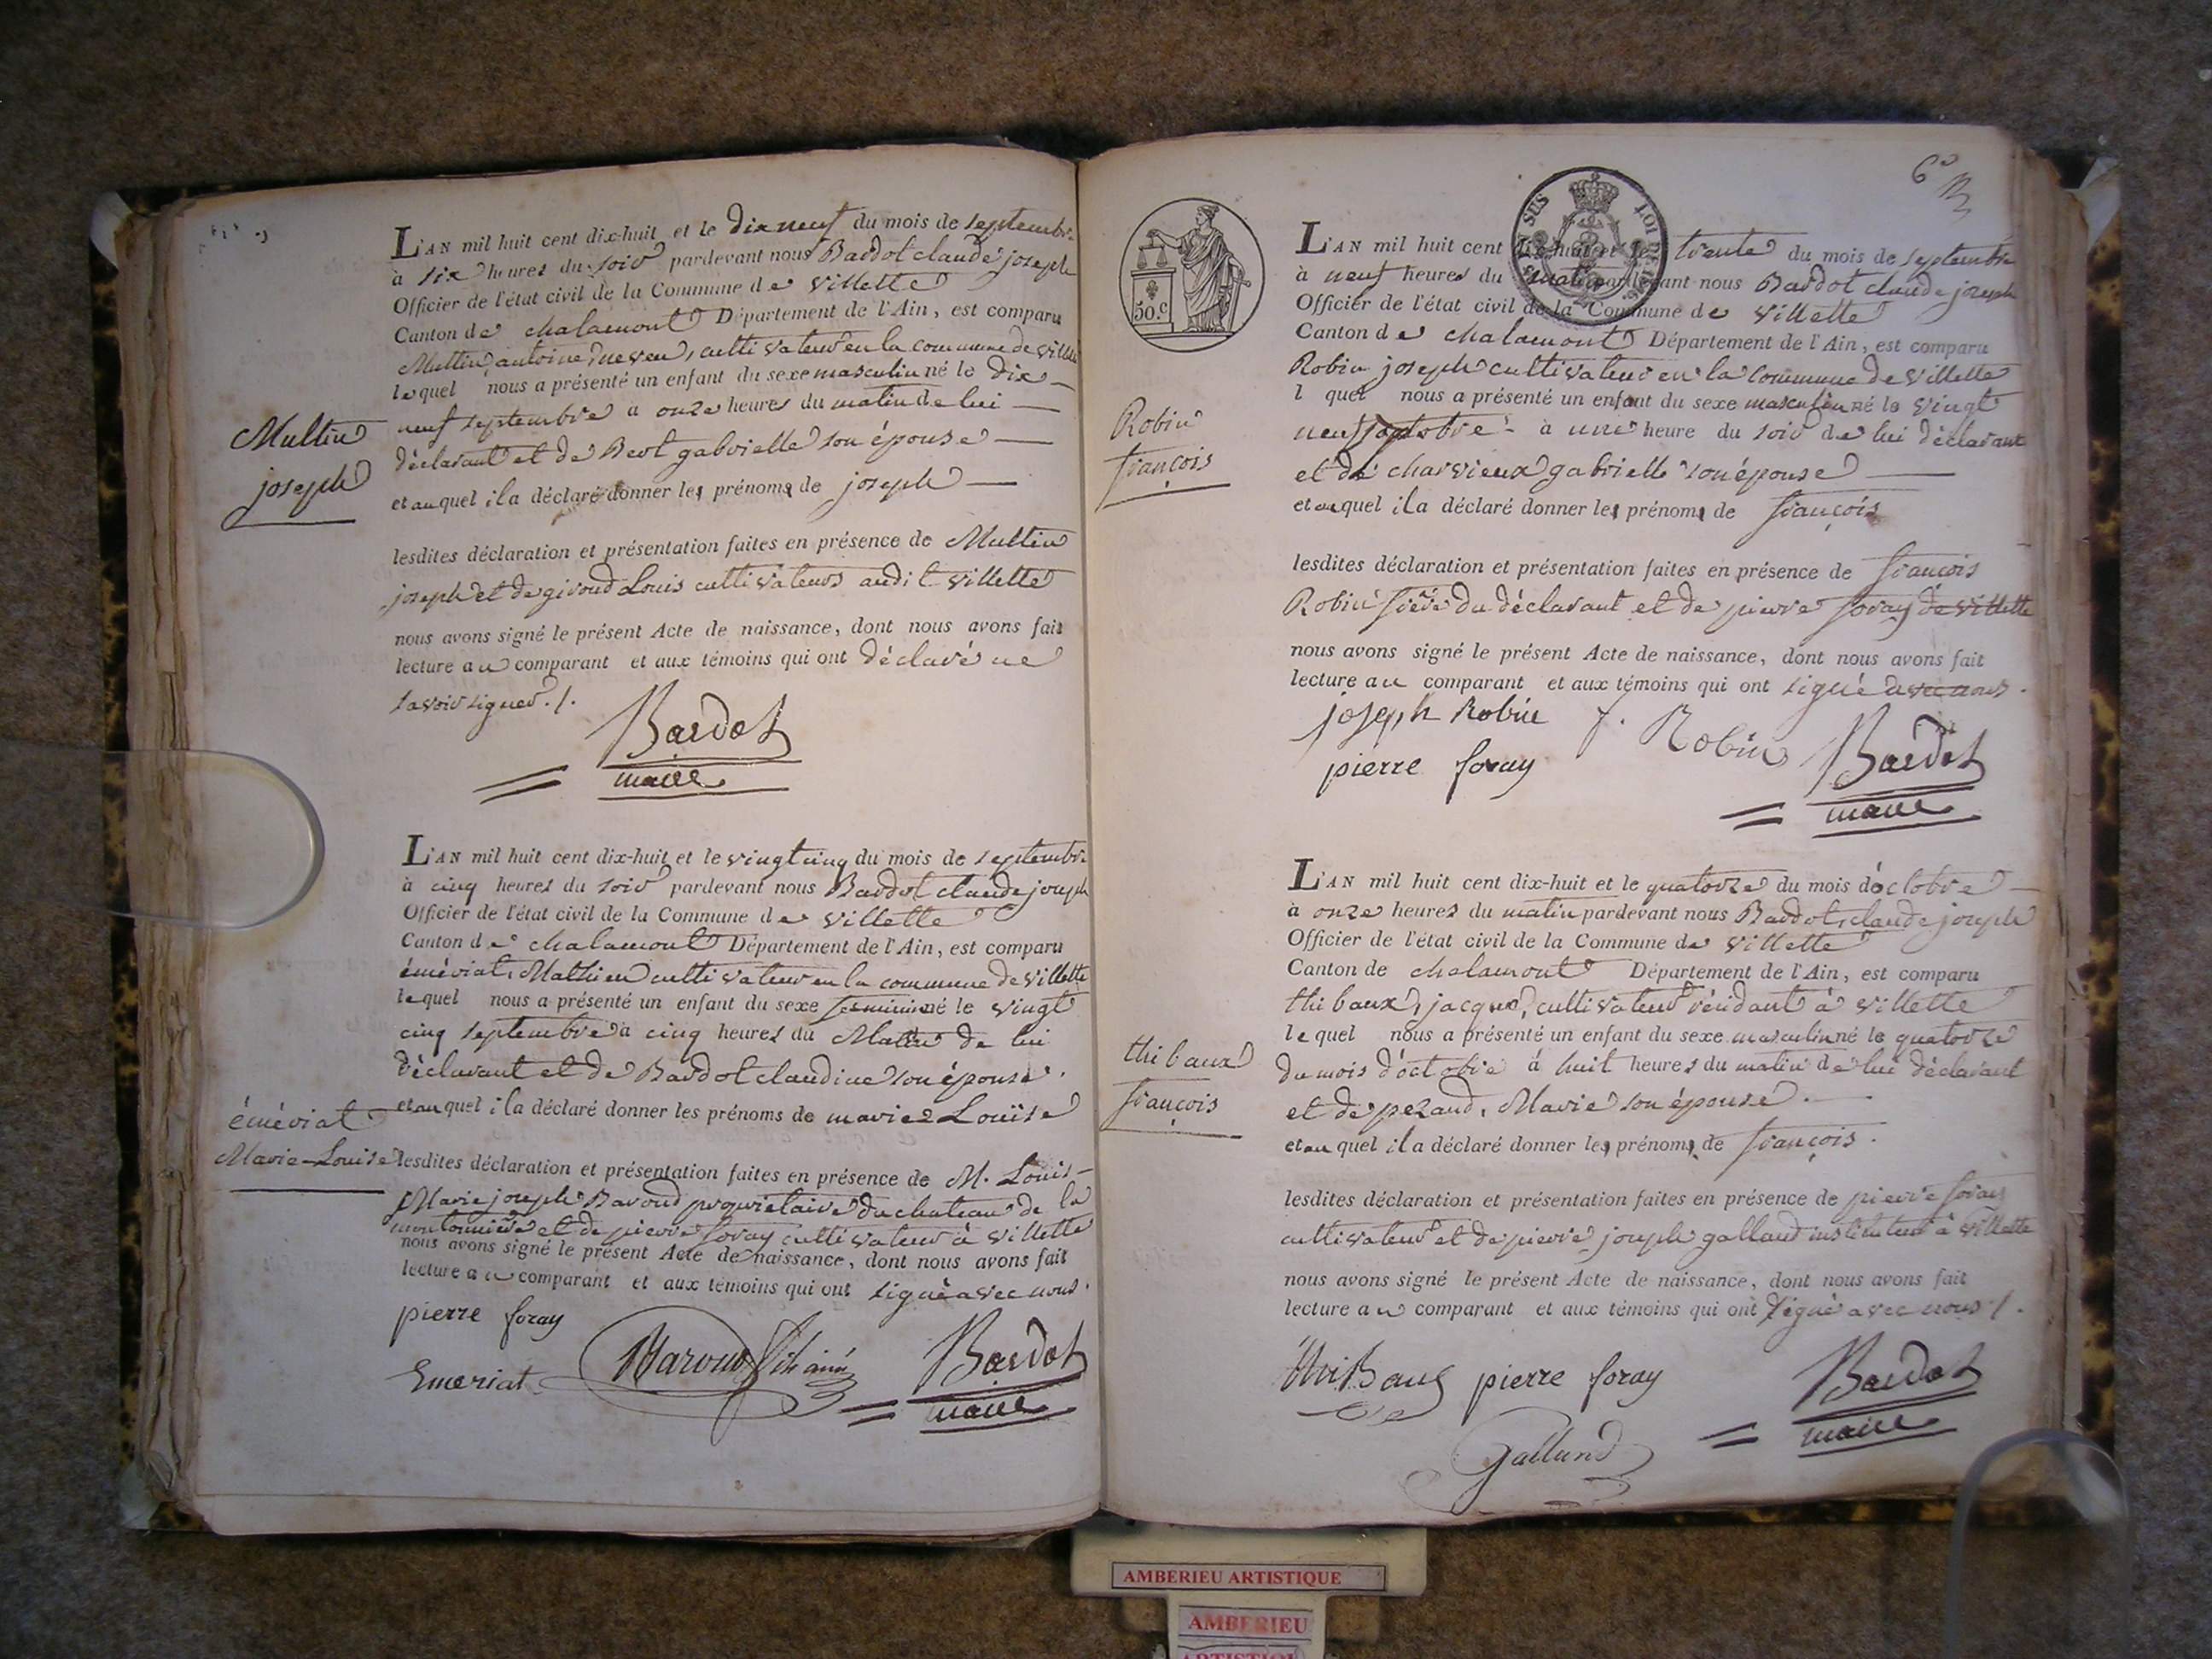 L'AN mil huit cent dix-huit et le dix neuf du mois de septembre
à six heures du soir pardevant nous Bardot claude joseph
Officier de l'état civil de la Commune de villette
Canton de chalamont Département de l'Ain, est comparu
Multin antoine neveu, cultivateur en la commune de villette
lequel nous a présenté un enfant du sexe masculin né le dix
neuf septembre à onze heures du matin de lui
déclarant et de Beot gabrielle son épouse
et auquel il a déclaré donner les prénoms de joseph
Multin
joseph
lesdites déclaration et présentation faites en présence de Multin
joseph et de giroud Louis cultivateurs audit villette
nous avons signé le présent Acte de naissance, dont nous avons fait
lecture au comparant et aux témoins qui ont déclaré ne
savoir signer ./.
Bardot
maire
L'AN mil huit cent dix-huit et le vingt cinq du mois de septembre
à cinq heures du soir pardevant nous Bardot claude joseph
Officier de l'état civil de la Commune de villette
Canton de chalamont Département de l'Ain, est comparu
émériat, Mathieu cultivateur en la commune de villette
lequel nous a présenté un enfant du sexe feminin né le vingt
cinq septembre à cinq heures du Matin de lui
déclarant et de Bardot claudine son épouse.
et auquel il a déclaré donner les prénoms de marie Louise
émériat
Marie-Louise
lesdites déclaration et présentation faites en présence de M. Louis
Marie joseph Baroud propriétaire du chateau de la
montonnière et de pierre foray cultivateur à villette
nous avons signé le présent Acte de naissance, dont nous avons fait
lecture au comparant et aux témoins qui ont signé avec nous.
pierre foray
Emeriat
Baroud fils ainé
Bardot
maire
6e
50.c
L'AN mil huit cent dix-huit et le trente du mois de septembre
à neuf heures du matin pardevant nous Bardot claude joseph
Officier de l'état civil de la Commune de villette
Canton de chalamont Département de l'Ain, est comparu
Robin joseph cultivateur en la commune de villette
l quel nous a présenté un enfant du sexe masculin né le vingt
neuf à une heure du soir de lui déclarant
et de charvieux gabrielle son épouse
et auquel il a déclaré donner les prénoms de françois
Robin
françois
lesdites déclaration et présentation faites en présence de françois
Robin frère du déclarant et de pierre foray de villette
nous avons signé le présent Acte de naissance, dont nous avons fait
lecture au comparant et aux témoins qui ont signé avec nous.
joseph Robin f. Robin
pierre foray
Bardot
maire
L'AN mil huit cent dix-huit et le quatorze du mois d'octobre
à onze heures du matin pardevant nous Bardot, claude joseph
Officier de l'état civil de la Commune de villette
Canton de chalamont Département de l'Ain, est comparu
thibaux, jacque, cultivateur résidant à villette
lequel nous a présenté un enfant du sexe masculin né le quatorze
du mois d'octobre à huit heures du matin de lui déclarant
et de pezaud, Marie son épouse.
et auquel il a déclaré donner les prénoms de françois.
thibaux
françois
lesdites déclaration et présentation faites en présence de pierre foray
cultivateur et de pierre joseph galland instituteur à villette
nous avons signé le présent Acte de naissance, dont nous avons fait
lecture au comparant et aux témoins qui ont signé avec nous ./.
thiBaux pierre foray
Galland
Bardot
maire
AMBERIEU ARTISTIQUE
AMBERIEU
ARTISTIQUE